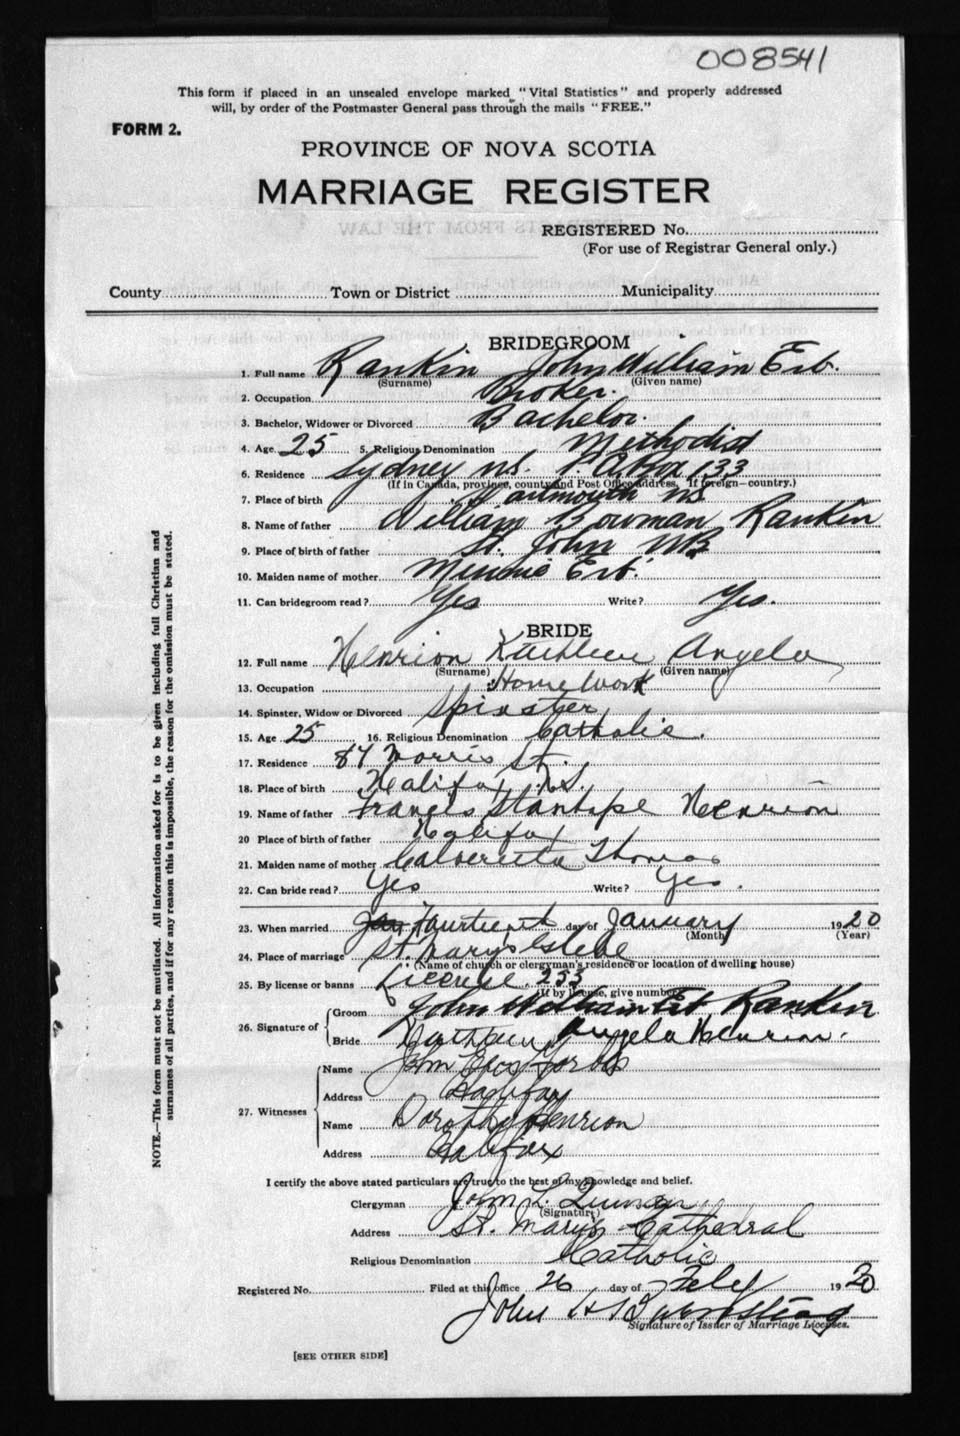 008541
This form if placed in an unsealed envelope marked "Vital Statistics" and properly addressed
will, by order of the Postmaster General pass through the mails "FREE."
FORM 2.
PROVINCE OF NOVA SCOTIA
MARRIAGE REGISTER
REGISTERED No.
(For use of Registrar General only.)
County Town or District Municipality
BRIDEGROOM
1. Full name Rankin John William Erb.
(Surname) (Given name)
2. Occupation Broker.
3. Bachelor, Widower or Divorced Bachelor.
4. Age 25 5. Religious Denomination Methodist
6. Residence Sydney NS. P.O. Box 133
(If in Canada, province, county and Post Office address, If foreign—country.)
7. Place of birth Dartmouth NS
8. Name of father William Bowman Rankin
9. Place of birth of father St. John NB
10. Maiden name of mother Minnie Erb.
11. Can bridegroom read? Yes Write? Yes.
BRIDE
12. Full name Henrion Kathleen Angela
(Surname) (Given name)
13. Occupation Home Work
14. Spinster, Widow or Divorced Spinster
15. Age 25 16. Religious Denomination Catholic.
17. Residence 84 Morris St.
18. Place of birth Halifax N.S.
19. Name of father Francis Henrion
20 Place of birth of father Halifax
21. Maiden name of mother Thomas
22. Can bride read? Yes Write? Yes.
23. When married Jan Fourteenth day of January 1920
(Month) (Year)
24. Place of marriage St. Mary's Glebe
(Name of church or clergyman's residence or location of dwelling house)
25. By license or banns License. 253
(If by license, give number)
26. Signature of Groom John William Erb Rankin
Bride Kathleen Angela Henrion.
27. Witnesses
Name John
Address Halifax
Name Dorothy Henrion
Address Halifax
I certify the above stated particulars are true to the best of my knowledge and belief.
Clergyman John L. Quinan
(Signature)
Address St. Mary's Cathedral
Religious Denomination Catholic
Registered No. Filed at this office 26 day of Feby 1920
John H
Signature of Issuer of Marriage Licenses.
[SEE OTHER SIDE]
NOTE.—This form must not be mutilated. All information asked for is to be given including full Christian and
surnames of all parties, and if for any reason this is impossible, the reason for the omission must be stated.